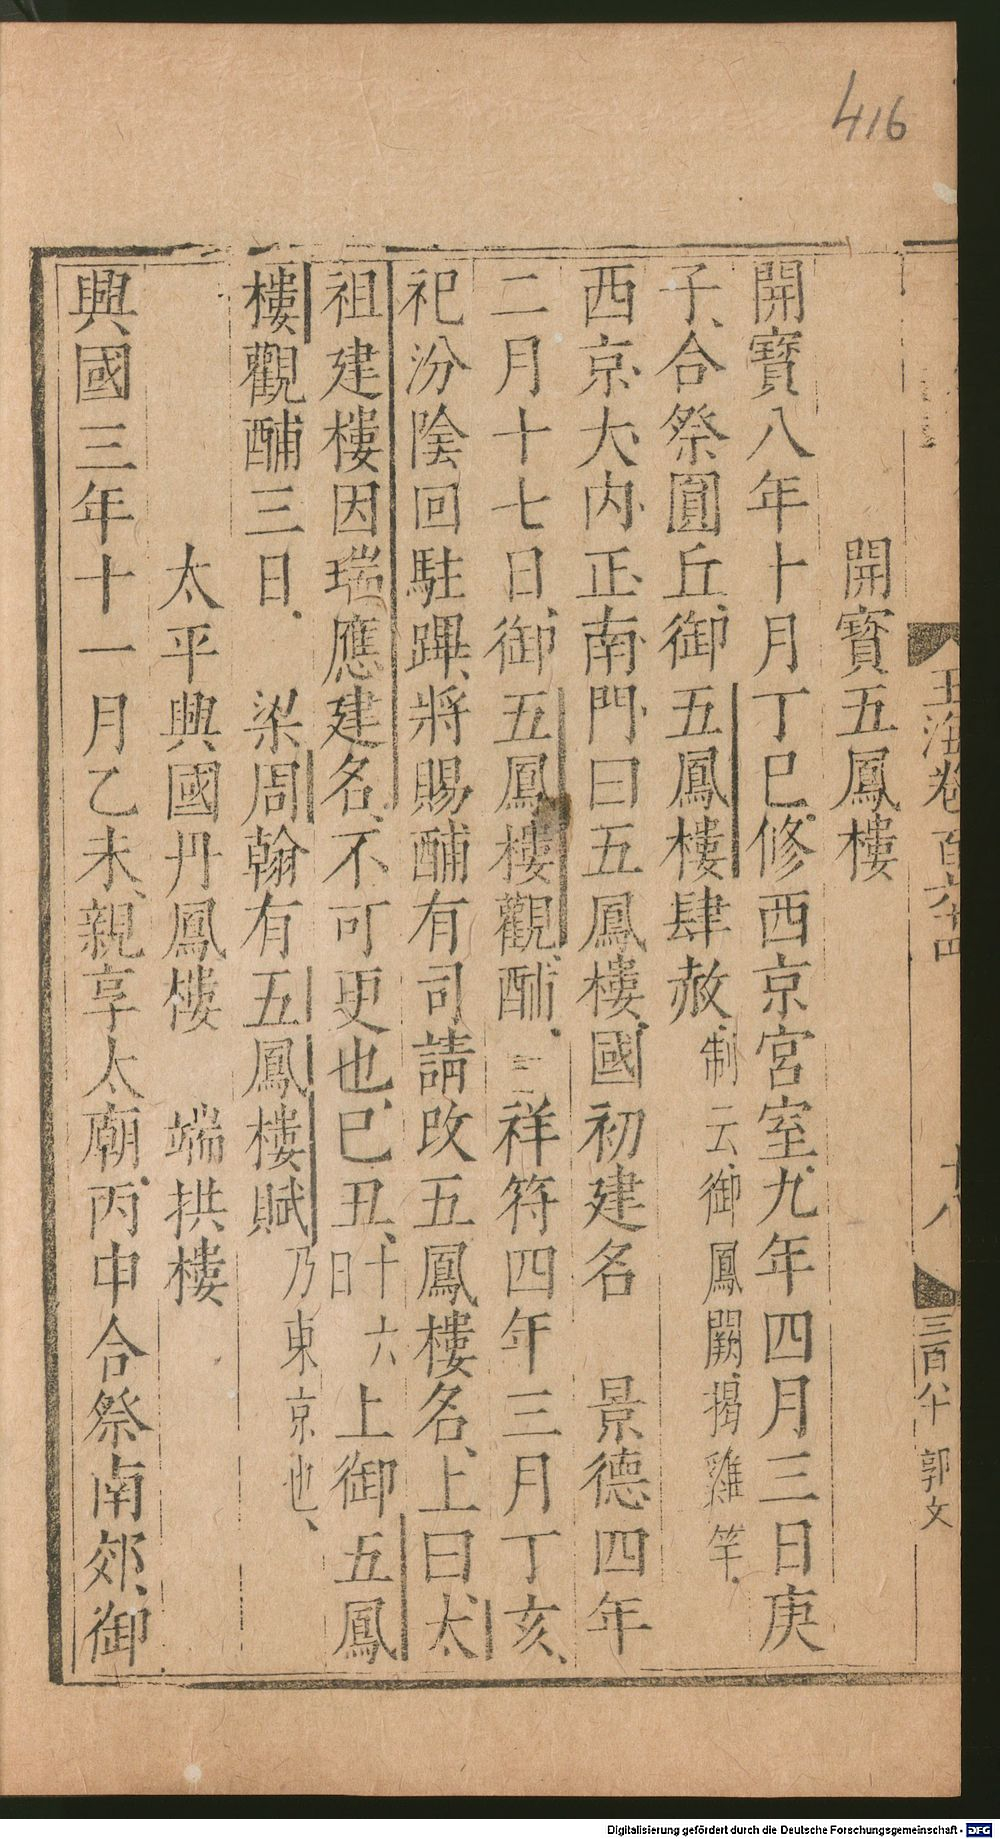 416
玉海卷百六十四
十八
三百八十
郭文
開寶五鳳樓
開寶八年十月丁巳修西京宮室九年四月三日庚
子合祭圓丘御五鳳樓肆赦制云御鳳闕揭雞竿
西京大內正南門曰五鳳樓國初建名 景德四年
二月十七日御五鳳樓觀酺三日祥符四年三月丁亥
祀汾陰回駐蹕將賜酺有司請改五鳳樓名上曰太
祖建樓因瑞應建名不可更也已丑十六日上御五鳳
樓觀酺三日 梁周翰有五鳳樓賦乃東京也
太平興國丹鳳樓 端拱樓
興國三年十一月乙未親享太廟丙申合祭南郊御
Digitalisierung gefördert durch die Deutsche Forschungsgemeinschaft - DFG